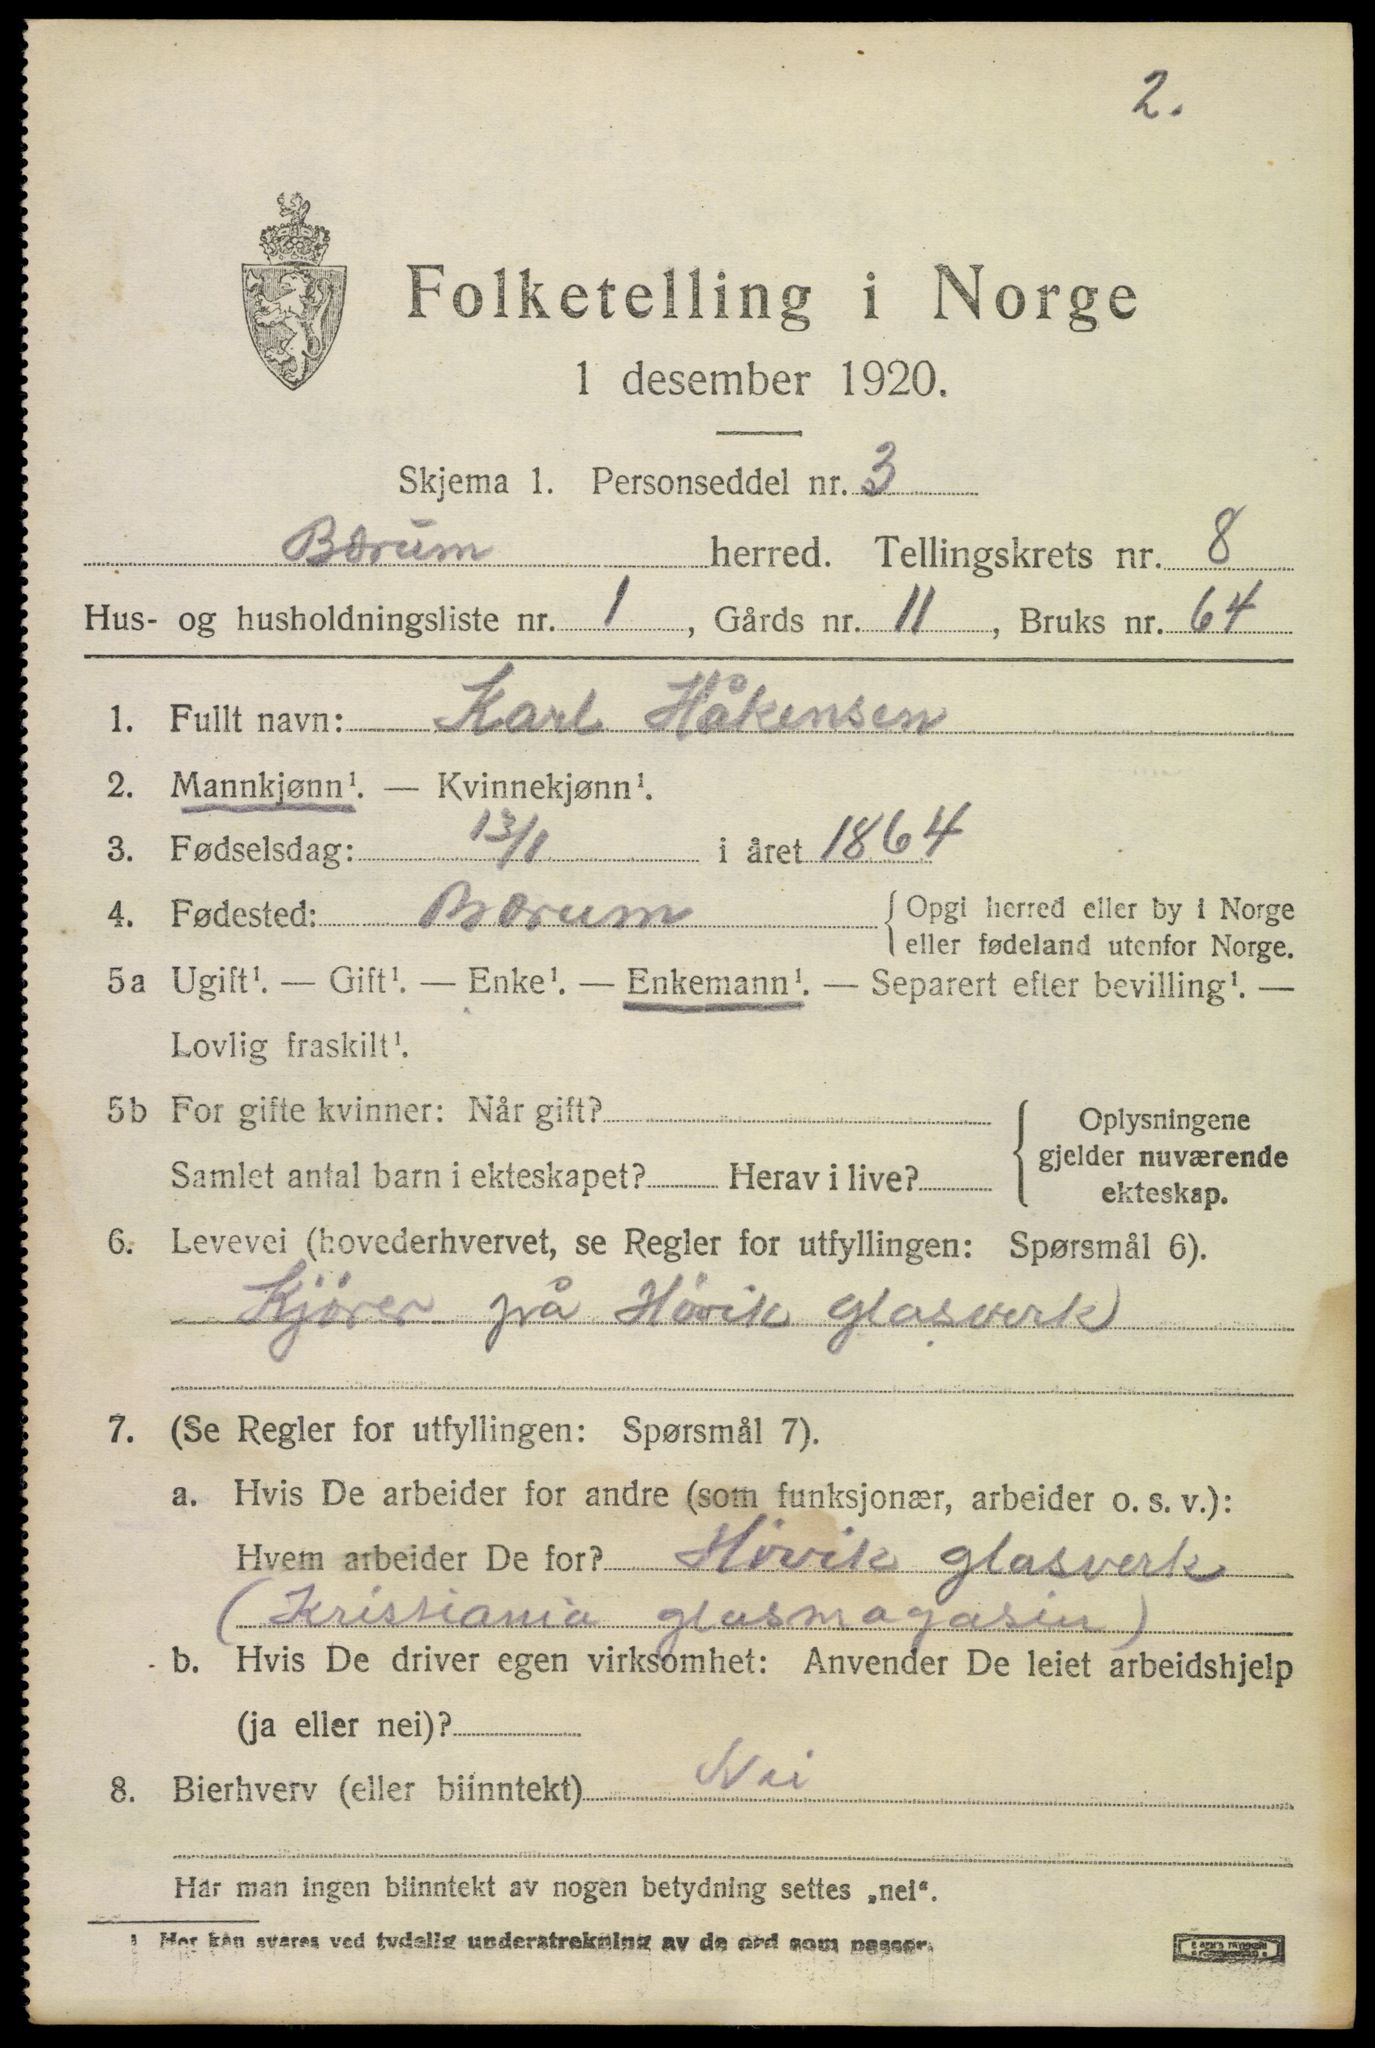 2.
Folketelling i Norge
1 desember 1920.
Skjema 1. Personseddel nr. 3
Bærum herred. Tellingskrets nr. 8
Hus- og husholdningsliste nr. 1, Gårds nr. 11, Bruks nr. 64
1. Fullt navn: Karl Håkensen
2. Mannkjønn¹. — Kvinnekjønn¹.
3. Fødselsdag: 13/1 i året 1864
4. Fødested: Bærum { Opgi herred eller by i Norge
eller fødeland utenfor Norge.
5a Ugift¹. — Gift¹. — Enke¹. — Enkemann¹. — Separert efter bevilling¹. —
Lovlig fraskilt¹.
5b For gifte kvinner: Når gift?
Samlet antal barn i ekteskapet? Herav i live?
{ Oplysningene
gjelder nuværende
ekteskap.
6. Levevei (hovederhvervet, se Regler for utfyllingen: Spørsmål 6).
Kjører på Høvik glasverk
7. (Se Regler for utfyllingen: Spørsmål 7).
a. Hvis De arbeider for andre (som funksjonær, arbeider o. s. v.):
Hvem arbeider De for? Høvik glasverk
(Kristiania glasmagasin)
b. Hvis De driver egen virksomhet: Anvender De leiet arbeidshjelp
(ja eller nei)?
8. Bierhverv (eller biinntekt) Nei
Har man ingen biinntekt av nogen betydning settes „nei“.
1 Her kan svares ved tydelig understrekning av de ord som passer.